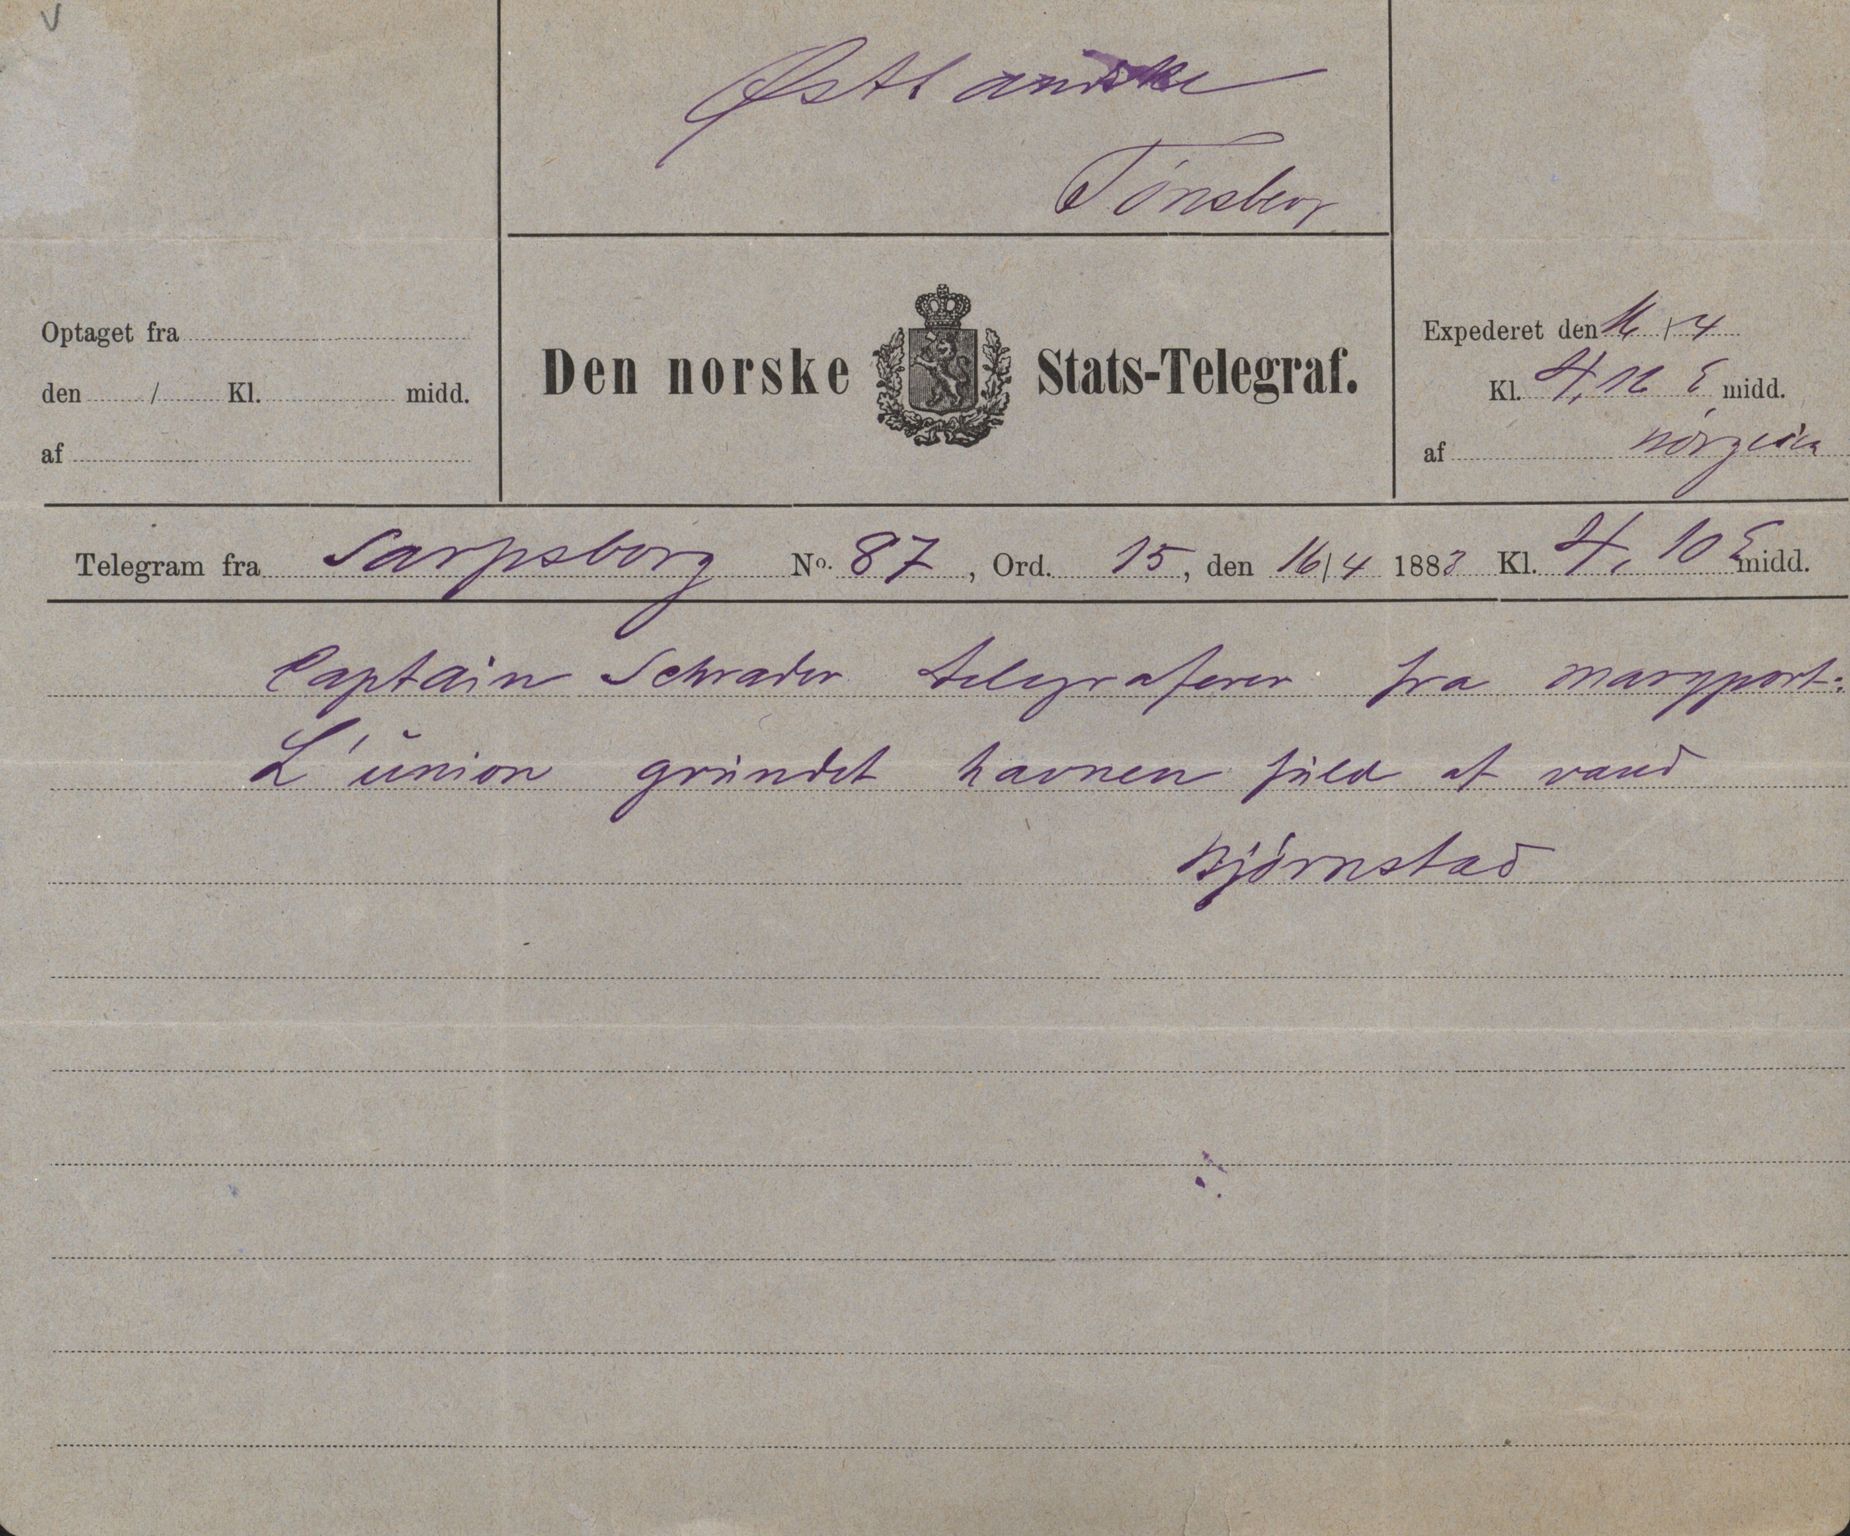 Østlandske
Tönsberg
Optaget fra
den / Kl. midd.
af
Den norske Stats-Telegraf.
Expederet den 16/4
Kl. 4,16 E midd.
af
Telegram fra Sarpsborg No. 87, Ord. 15, den 16/4 1883 Kl. 4,10 E midd.
Captain Schrader telegraferer fra maryport:
L'union grundet havnen fuld af vand
Björnstad